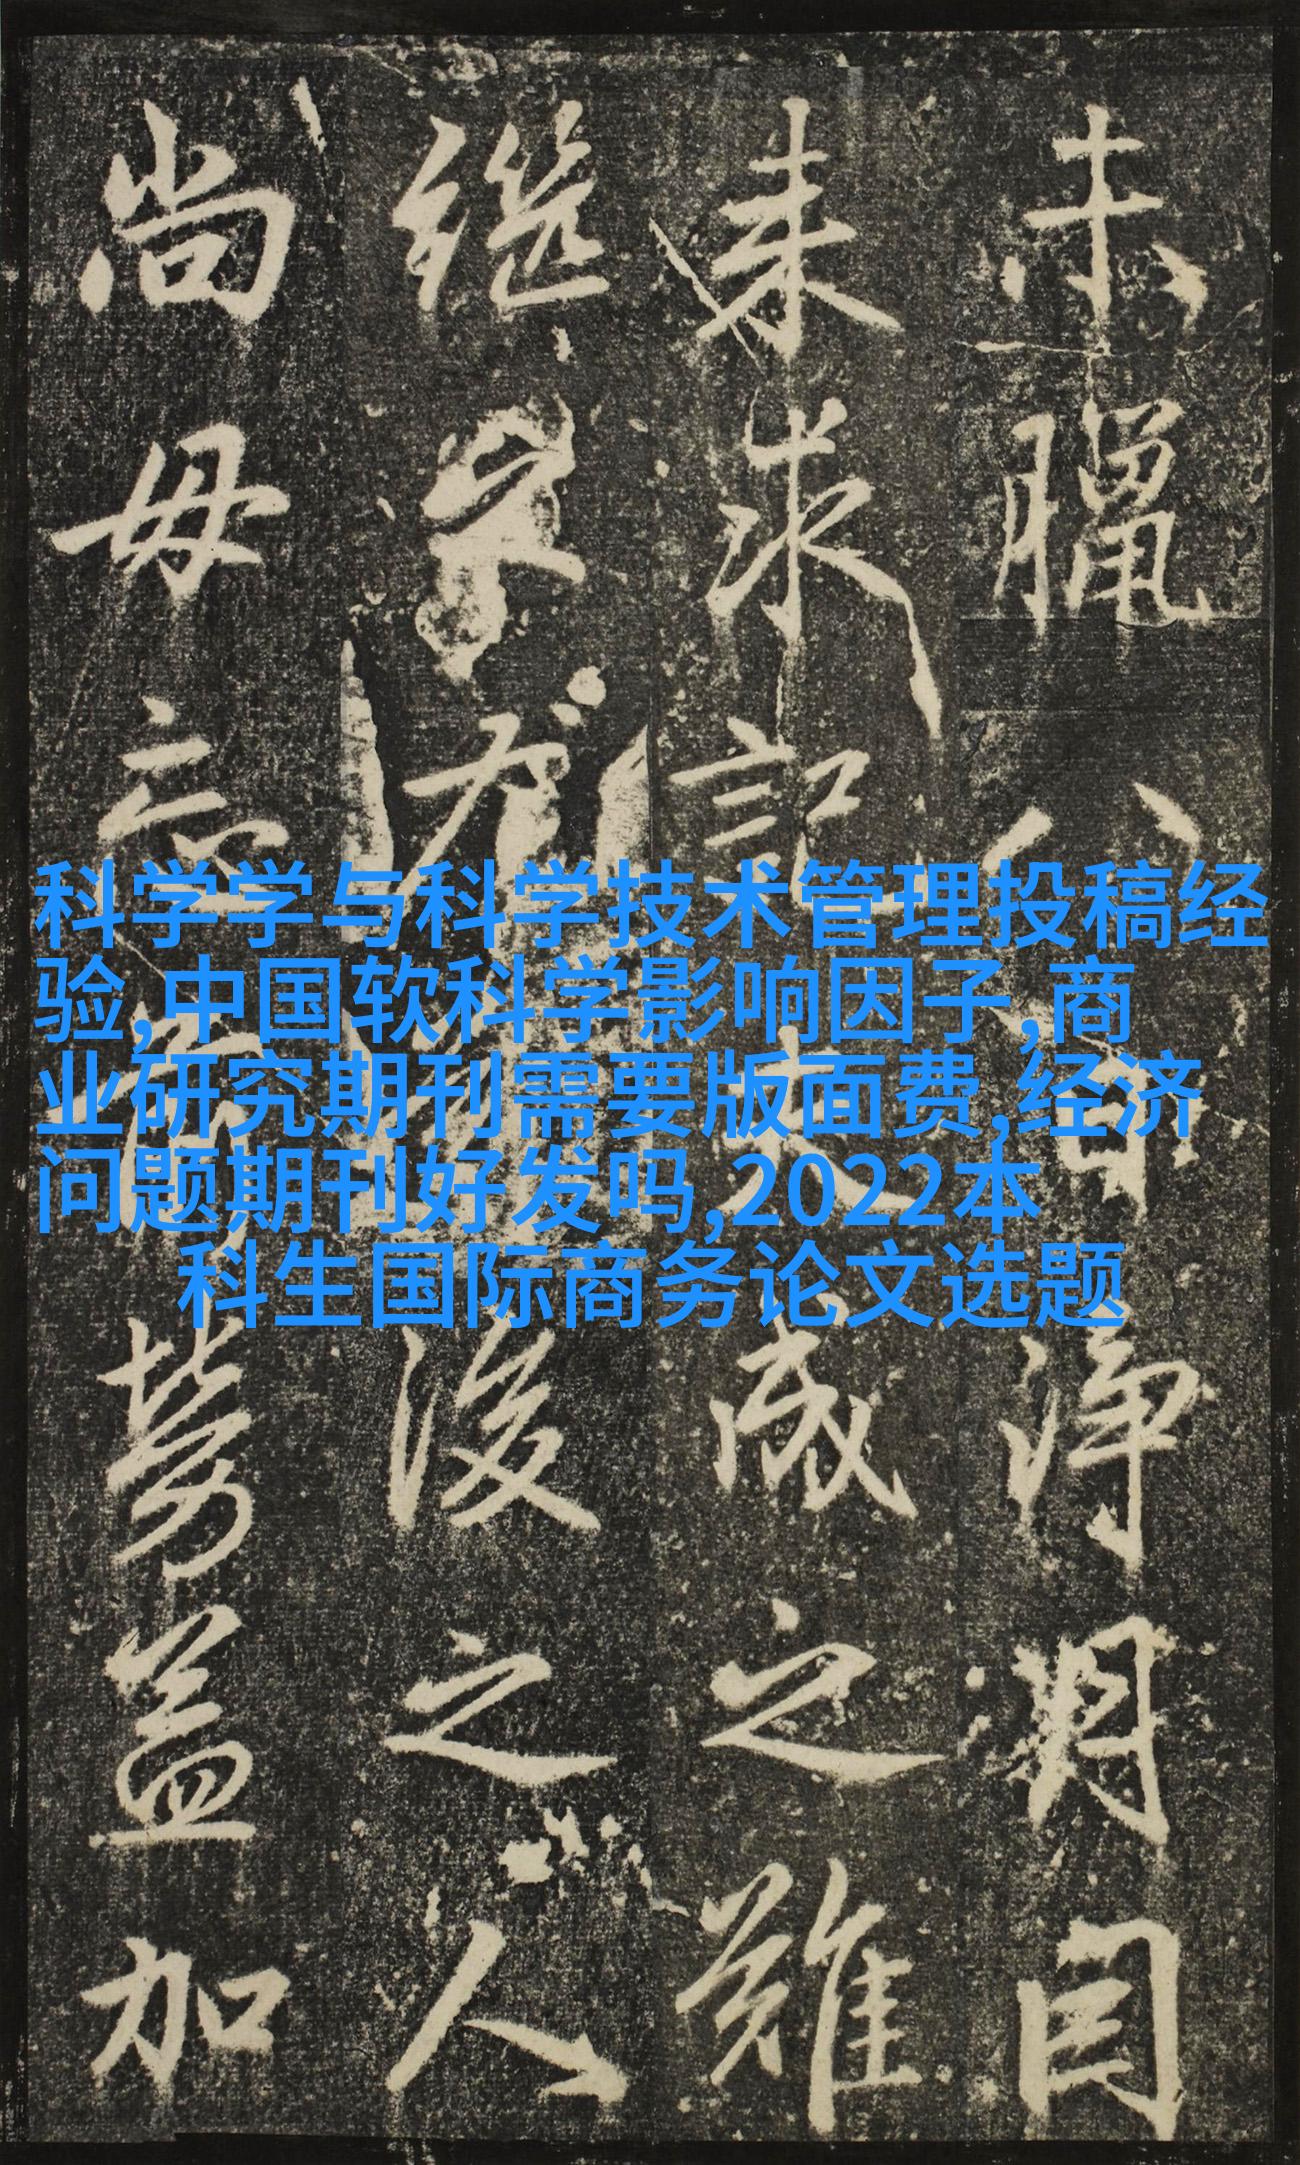 科学学与科学技术管理投稿经
验,中国软科学影响因子,商
业研究期刊需要版面费,经济
问题期刊好发吗,2022本
科生国际商务论文选题
未臘八日淨
来求記成之難
继後之人
尚毋忘勞益加